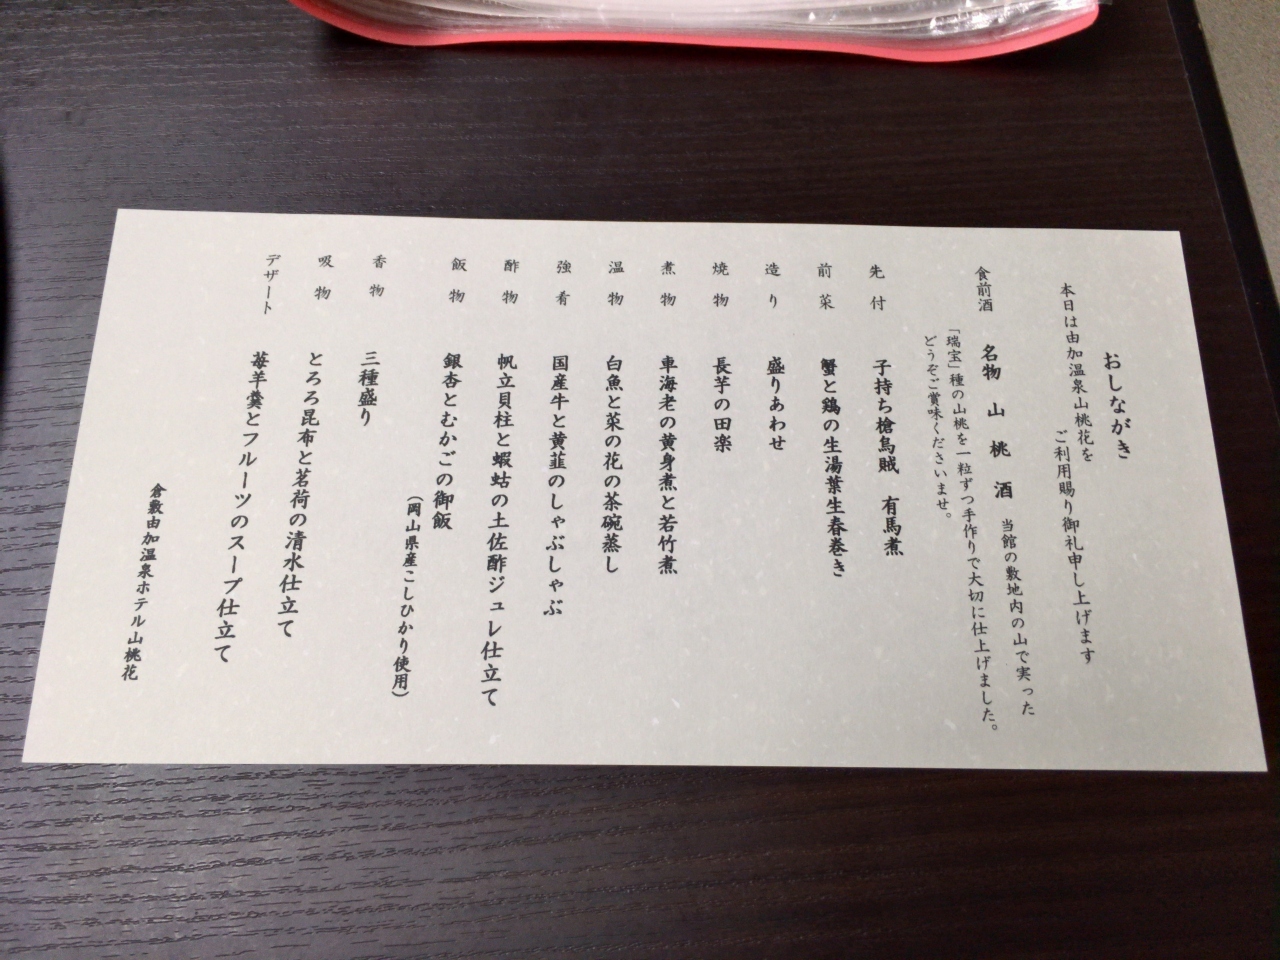 おしながき
本日は由加温泉山桃花を
ご利用賜り御礼申し上げます
食前酒 名物 山桃酒 当館の敷地内の山で実った
「瑞宝」種の山桃を一粒ずつ手作りで大切に仕上げました。
どうぞご賞味くださいませ。
先付 子持ち槍烏賊 有馬煮
前菜 蟹と鶏の生湯葉生春巻き
造り 盛りあわせ
焼物 長芋の田楽
煮物 車海老の黄身煮と若竹煮
温物 白魚と菜の花の茶碗蒸し
強肴 国産牛と黄韮のしゃぶしゃぶ
酢物 帆立貝柱と蝦蛄の土佐酢ジュレ仕立て
飯物 銀杏とむかごの御飯
(岡山県産こしひかり使用)
香物 三種盛り
吸物 とろろ昆布と茗荷の清水仕立て
デザート 苺羊羹とフルーツのスープ仕立て
倉敷由加温泉ホテル山桃花